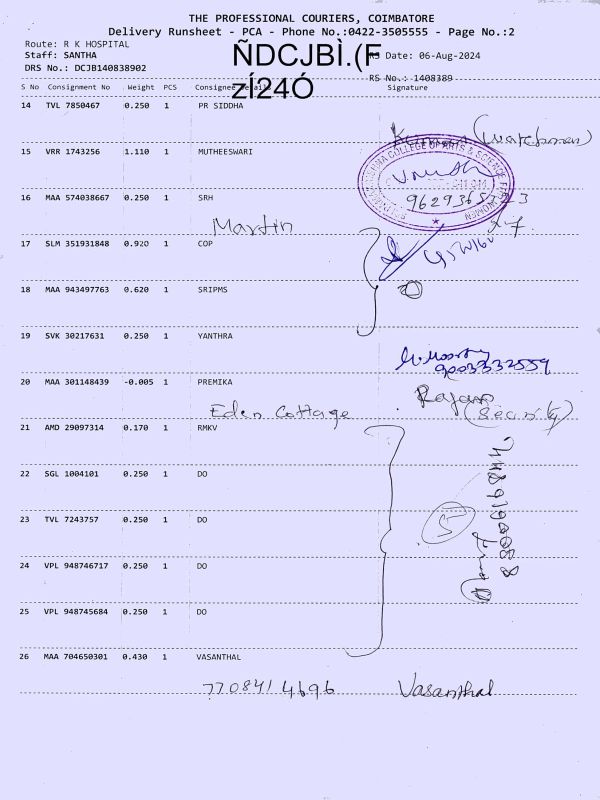 THE PROFESSIONAL COURIERS, COIMBATORE
Delivery Runsheet - PCA - Phone No.:0422-3505555 - Page No.:2
Route: R K HOSPITAL
Staff: SANTHA
DRS No.: DCJB140838902
ÑDCJBÌ.(F
zÍ24Ó
RS Date: 06-Aug-2024
RS No.: 1408389
S No Consignment No Weight PCS Consignee Details Signature
14 TVL 7850467 0.250 1 PR SIDDHA
Kumar (Watchman)
15 VRR 1743256 1.110 1 MUTHEESWARI
COLLEGE OF ARTS & SCIENCE FOR WOMEN
16 MAA 574038667 0.250 1 SRH
Martin
17 SLM 351931848 0.920 1 COP
18 MAA 943497763 0.620 1 SRIPMS
19 SVK 30217631 0.250 1 YANTHRA
9003332559
20 MAA 301148439 -0.005 1 PREMIKA
Eden Cottage
Rajan (Security)
21 AMD 29097314 0.170 1 RMKV
22 SGL 1004101 0.250 1 DO
23 TVL 7243757 0.250 1 DO
5
24 VPL 948746717 0.250 1 DO
25 VPL 948745684 0.250 1 DO
26 MAA 704650301 0.430 1 VASANTHAL
7708414696 Vasanthal